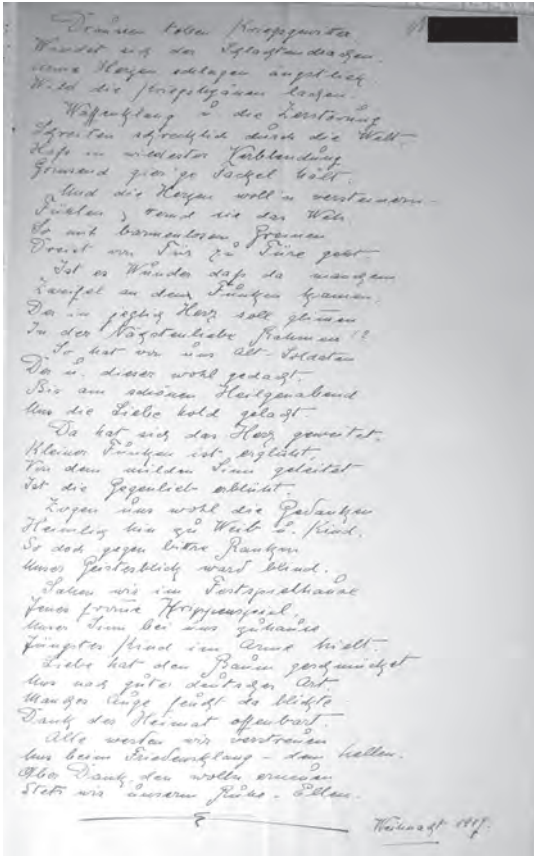 Draußen toben Kriegsgewitter
Windet sich der Schlachtendrachen.
Arme Herzen schlagen angstlich
Wild die Kriegshyänen lachen.
Waffenklang u die Zerstörung
Schreiten schrecklich durch die Welt.
Haß in wildester Verblendung
Grinsend gier'ge Fackel hält.
Und die Herzen woll'n versteinern
Fühlen fremd sie das Weh
So mit barmenlosen
Dreist von Tür zu Türe geht.
Ist es Wunder daß da manchem
Zweifel an dem Funken kamen,
Der in jeglich Herz soll glimen
In der Nächstenliebe Rahmen!?
So hat vor uns Alt-Soldaten
Der u. dieser wohl gedacht.
Bis am schönen Heilgenabend
Uns die Liebe hold gelacht
Da hat sich das Herz geweitet,
Kleiner Funken ist erglüht,
Von dem milden Sinn geleitet
Ist die Gegenlieb erblüht.
Zogen uns wohl die Gedanken
Heimlich hin zu Weib u. Kind.
So doch gegen bittre Ranken
Unser Geisterblick ward blind.
Sahen wir im Festspielhause
Jenes fromme Krippenspiel,
Unser Sinn bei uns zuhause
Jüngstes Kind im Arme hielt.
Liebe hat den Baum geschmücket
Uns nach guter deutscher Art.
Manches Auge feucht da blickte
Dank der Heimat offenbart.
Alle werden wir verstreuen
Uns beim Friedensklang - dem hellen.
Aber Dank, den wolln erneuen
Stets wir unserm
Weihnacht 1917.